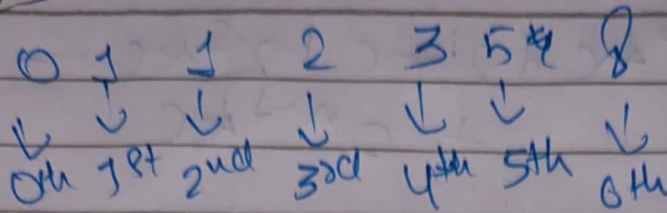 0 1 1 2 3 5 8
↓ ↓ ↓ ↓ ↓ ↓ ↓
0th 1st 2nd 3rd 4th 5th 6th